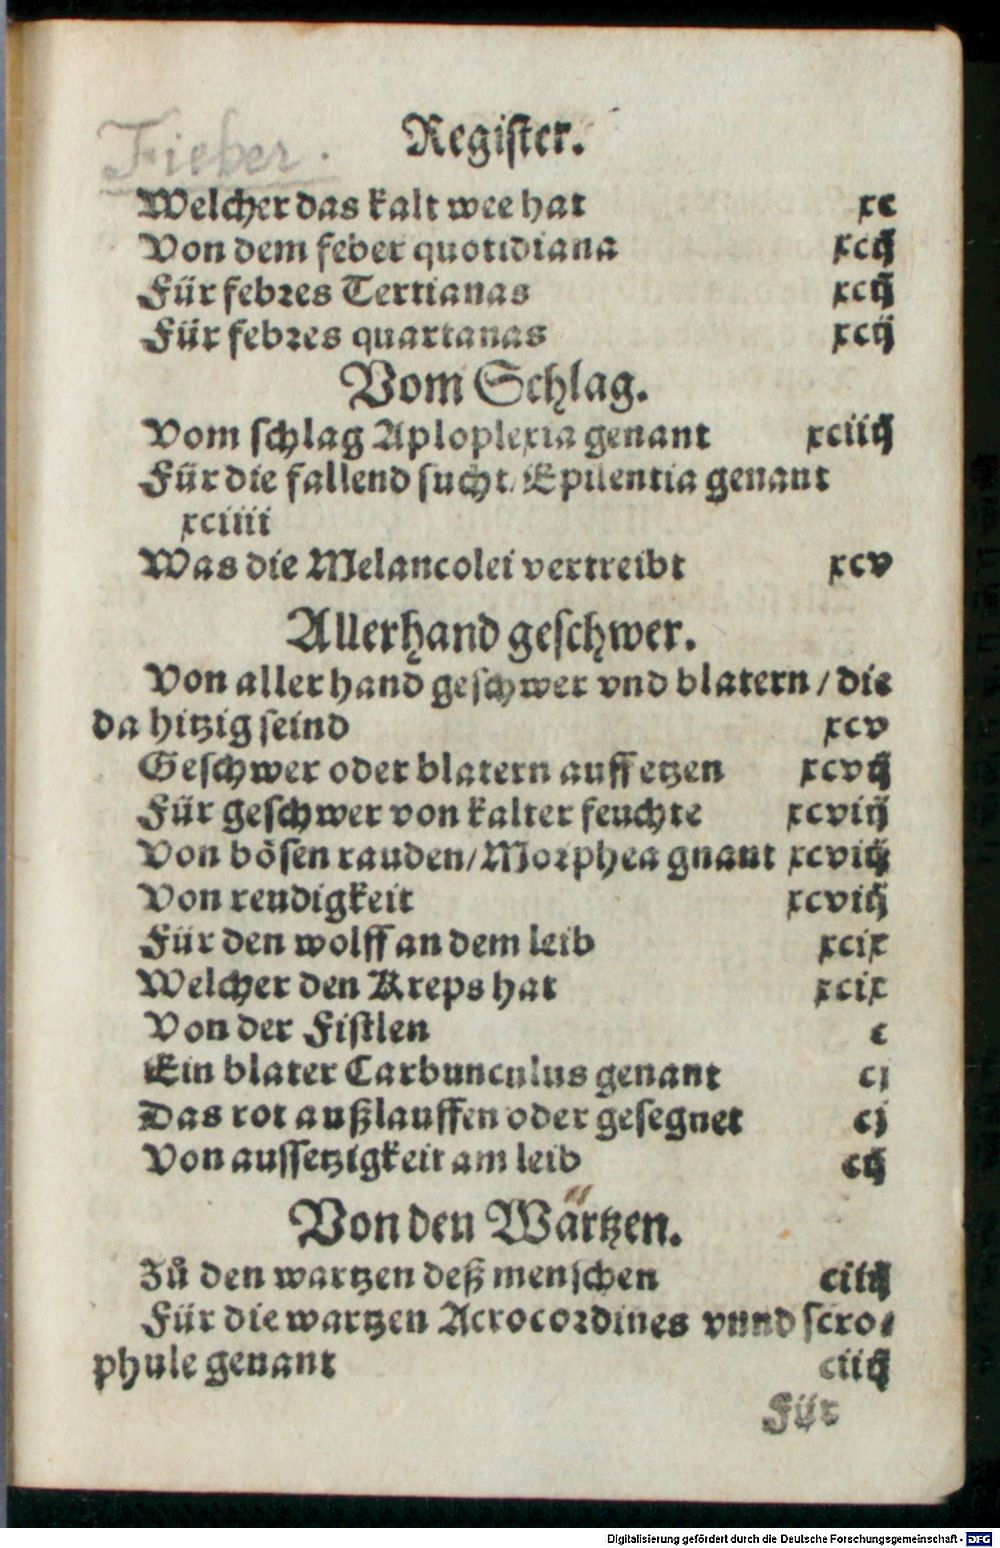 Fieber.
Register.
Welcher das kalt wee hat xc
Von dem feber quotidiana xcij
Für febres Tertianas xcij
Für febres quartanas xcij
Vom Schlag.
Vom schlag Aploplexia genant xciiij
Für die fallend sucht/ Epilentia genant
xciiii
Was die Melancolei vertreibt xcv
Allerhand geschwer.
Von allerhand geschwer vnd blatern / die
da hitzig seind xcv
Geschwer oder blatern auff etzen xcvij
Für geschwer von kalter feuchte xcviij
Von bösen rauden/Morphea gnant xcviij
Von reudigkeit xcviij
Für den wolff an dem leib xcix
Welcher den Kreps hat xcix
Von der Fistlen c
Ein blater Carbunculus genant cj
Das rot außlauffen oder gesegnet cj
Von aussetzigkeit am leib cij
Von den Wärtzen.
Zů den wartzen deß menschen ciiij
Für die wartzen Acrocordines vnnd scro-
phule genant ciiij
Für
Digitalisierung gefördert durch die Deutsche Forschungsgemeinschaft - DFG